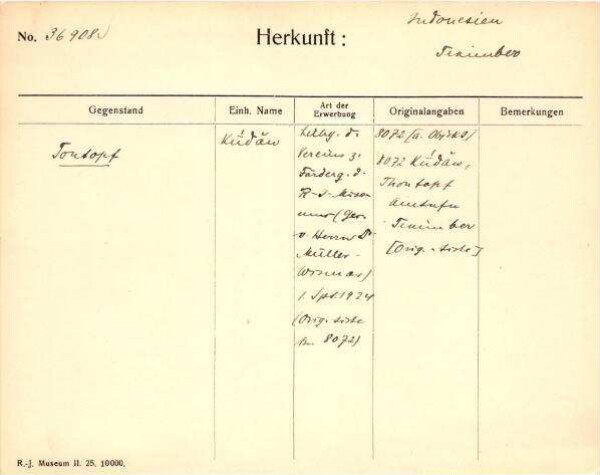 No. 36908
Herkunft:
Indonesien
Tenimber
Gegenstand
Einh. Name
Art der
Erwerbung
Originalangaben
Bemerkungen
Tontopf
Kúdân
Leihg. d.
Vereins z.
Förderg. d.
R-J-Muse
ums (
v Herrn Dr
Müller-
Wismar)
1. Spt. 1924
(Orig. Liste
Nr. 8072)
8072 (a. Objekt)
8072 Kúdân,
Thontopf
Tenimber
[Orig.-Liste]
R.-J. Museum II. 25. 10000.